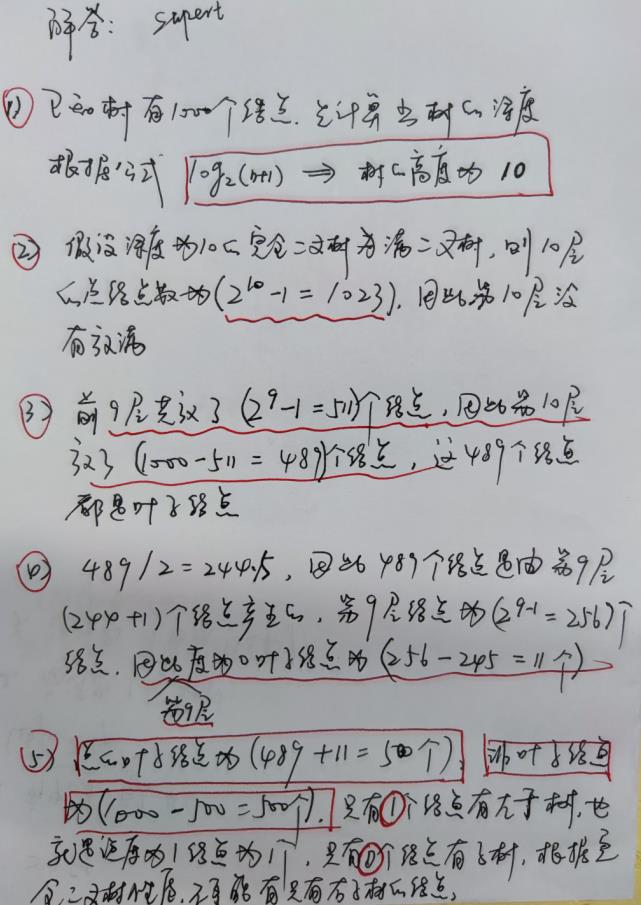 解答: 
1) 已知树有1000个结点. 先计算出树的深度
根据公式 log₂(n+1) ⇒ 树的高度为 10
2) 假设深度为10的完全二叉树为满二叉树, 则10层
的总结点数为(2¹⁰-1=1023). 因此第10层没
有放满
3) 前9层共放了(2⁹-1=511)个结点, 因此第10层
放了(1000-511=489)个结点, 这489个结点
都是叶子结点
4) 489/2=244.5, 因此489个结点是由第9层
(244+1)个结点产生的, 第9层结点为(2⁹⁻¹=256)个
结点. 因此度为0叶子结点为(256-245=11个)
第9层
5) 总的叶子结点为(489+11=500个), 非叶子结点
为(1000-500=500个). 只有1个结点有左子树, 也
就是说度为1结点为1个, 只有0个结点有子树, 根据完
全二叉树性质, 不可能有只有右子树的结点,